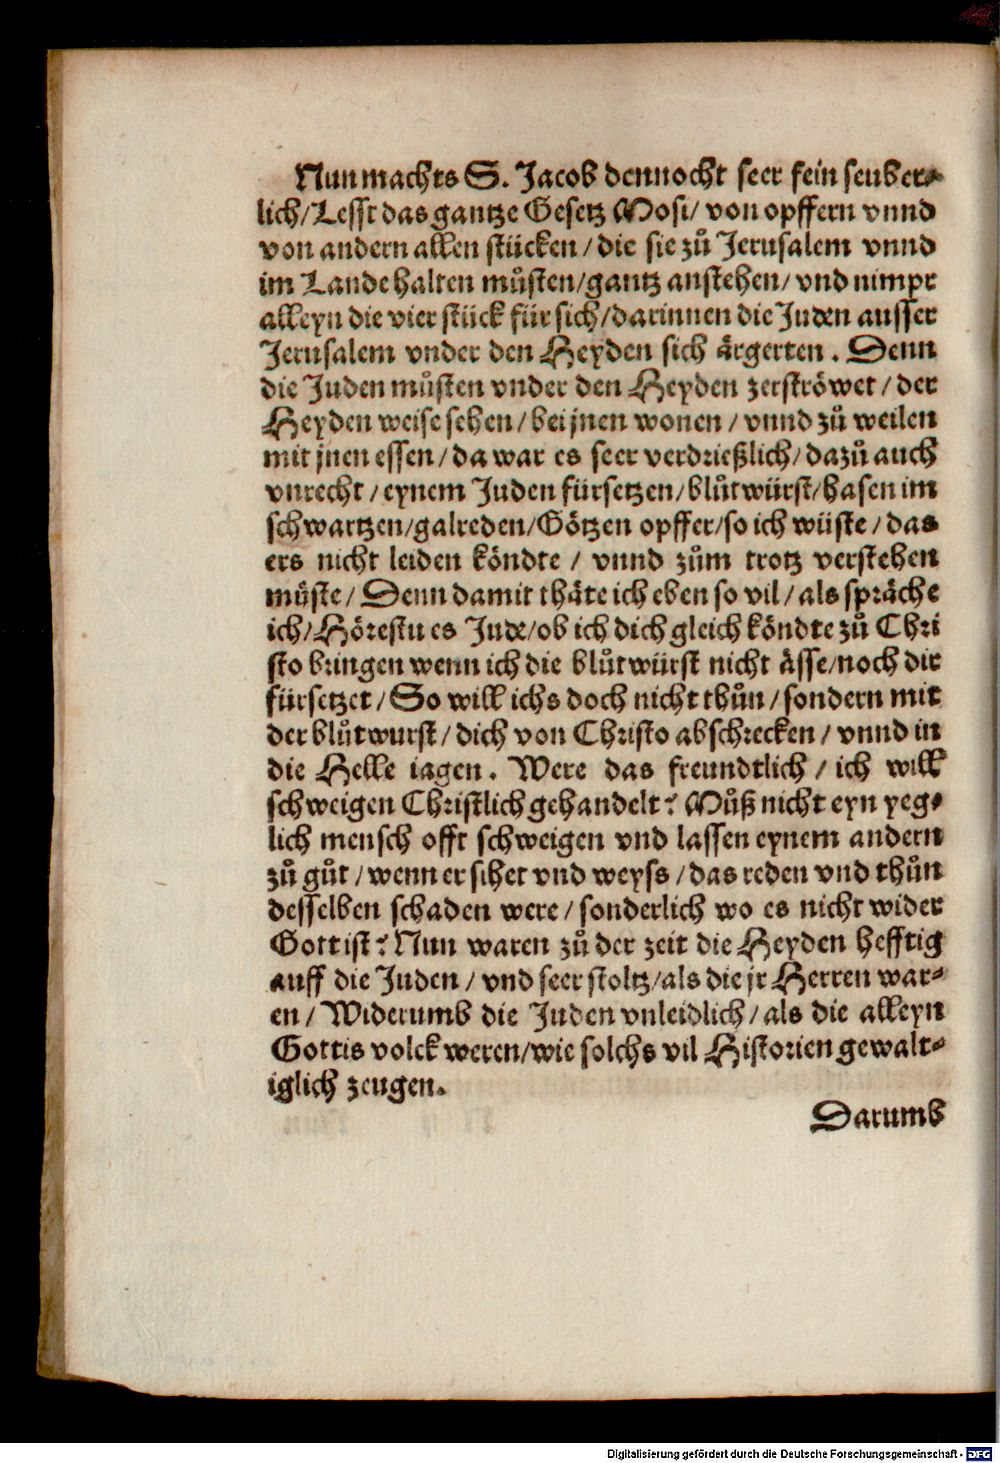 Nun machts S. Jacob dennocht seer fein seuber-
lich/Lesst das gantze Gesetz Mosi/ von opffern vnnd
von andern allen stücken/die sie zů Jerusalem vnnd
im Lande halten můsten/gantz anstehen/vnd nimpt
alleyn die vier stück für sich/darinnen die Juden ausser
Jerusalem vnder den Heyden sich ärgerten. Denn
die Juden můsten vnder den Heyden zerströwet/der
Heyden weise sehen/bei jnen wonen/vnnd zů weilen
mit jnen essen/da war es seer verdrießlich/dazů auch
vnrecht/eynem Juden fürsetzen/blůtwürst/hasen im
schwartzen/galreden/Götzen opffer/so ich wüste/das
ers nicht leiden köndte/ vnnd zům trotz verstehen
müste/Denn damit thäte ich eben so vil/als spräche
ich/Hörestu es Jude/ob ich dich gleich köndte zů Chri
sto bringen wenn ich die blůtwürst nicht ässe/noch dir
fürsetzet/So will ichs doch nicht thůn/sondern mit
der blůtwurst/dich von Christo abschrecken/vnnd in
die Helle iagen. Were das freundtlich/ich will
schweigen Christlich gehandelt? Můß nicht eyn yeg-
lich mensch offt schweigen vnd lassen eynem andern
zů gůt/wenn er sihet vnd weyss/das reden vnd thůn
desselben schaden were/sonderlich wo es nicht wider
Gott ist? Nun waren zů der zeit die Heyden hefftig
auff die Juden/vnd seer stoltz/als die jr Herren war-
en/Widerumb die Juden vnleidlich/als die alleyn
Gottis volck weren/wie solchs vil Historien gewalt-
iglich zeugen.
Darumb
Digitalisierung gefördert durch die Deutsche Forschungsgemeinschaft - DFG